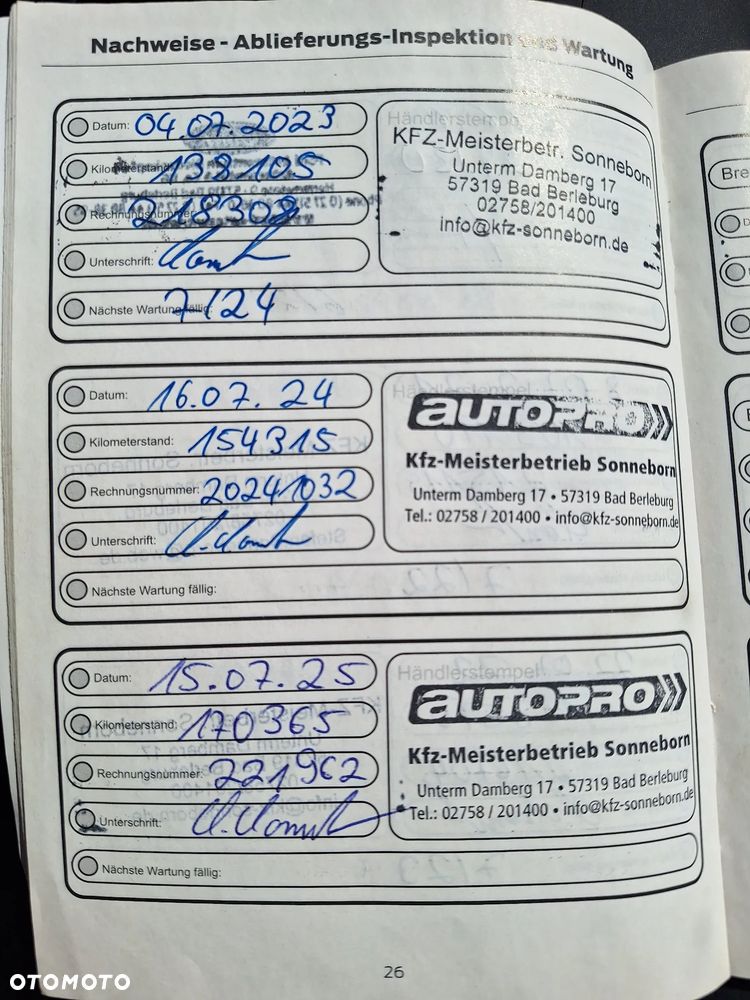 Nachweise - Ablieferungs-Inspektion und Wartung
Datum: 04.07.2023
Kilometerstand: 138105
Rechnungsnummer: 218308
Unterschrift:
Nächste Wartung fällig: 7/24
Händlerstempel
KFZ-Meisterbetr. Sonneborn
Unterm Damberg 17
57319 Bad Berleburg
02758/201400
info@kfz-sonneborn.de
Datum: 16.07.24
Kilometerstand: 154315
Rechnungsnummer: 20241032
Unterschrift:
Nächste Wartung fällig:
Händlerstempel
AUTOPRO
Kfz-Meisterbetrieb Sonneborn
Unterm Damberg 17 • 57319 Bad Berleburg
Tel.: 02758 / 201400 • info@kfz-sonneborn.de
Datum: 15.07.25
Kilometerstand: 170365
Rechnungsnummer: 221962
Unterschrift:
Nächste Wartung fällig:
Händlerstempel
AUTOPRO
Kfz-Meisterbetrieb Sonneborn
Unterm Damberg 17 • 57319 Bad Berleburg
Tel.: 02758 / 201400 • info@kfz-sonneborn.de
Bre
26
OTOMOTO